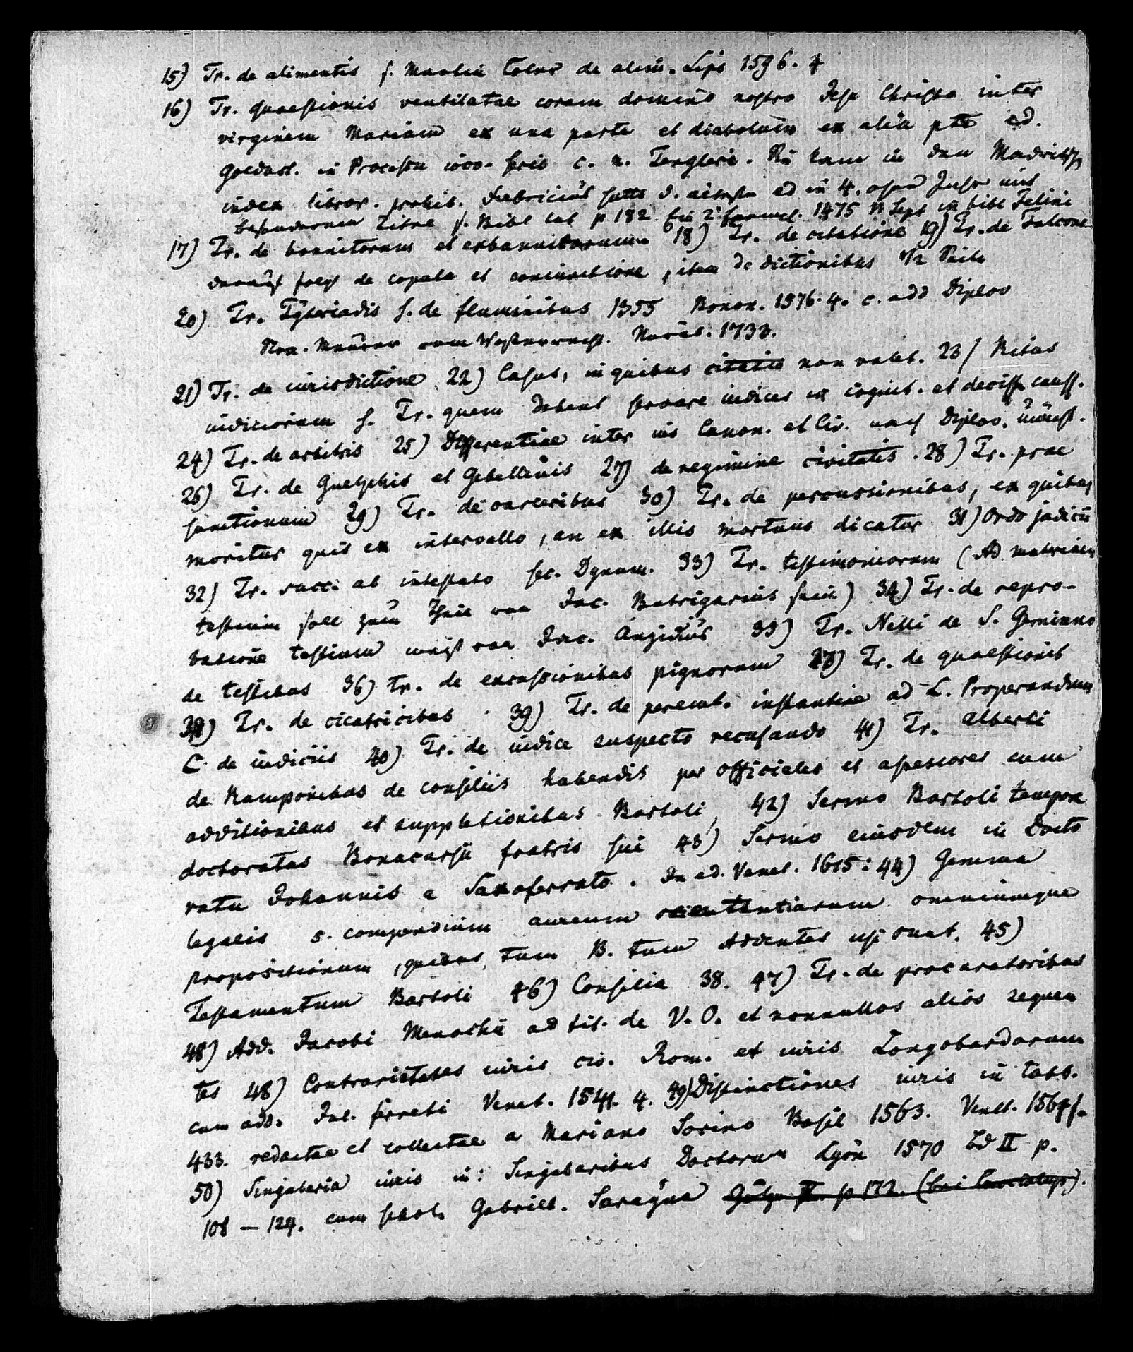 15) Tr. de alimentis s. Martin Colar de alim. Lips 1596. 4
16) Tr. quaestionis ventilatae coram domino nostro Jesu Christo inter
virginem Mariam ex una parte et diabolum ex alia pte ed.
Goldast. in Processu ioco-serio c. n. Tengleri. In dem Madrider
index libror. prohib. Fabricius ed in 4.
p 182 1475 in bibl Felini
17) Tr. de bannitorum et exbannitorum 18) Tr. de citatione 19) Tr. de Falcone
darauf folgt de copula et coniunctione, item de dictionibus
20) Tr. Tyberiadis s. de fluminibus 1355 Bonon. 1576. 4. c. add Diplov
1733.
21) Tr. de iurisdictione 22) Casus, in quibus citatio non valet. 23) Ritus
iudiciorum s. Tr. quem debent servare iudices in cognit. et deciss. causs.
24) Tr. de arbitris 25) Differentiae inter ius Canon. et Civ. nach Diplov.
26) Tr. de Guelphis et Gebellinis 27) de regimine civitatis. 28) Tr. prae
sumtionum 29) Tr. de carceribus 30) Tr. de percussionibus, ex quibus
moritur quis ex intervallo, an ex illis mortuus dicatur 31) Ordo judicii
32) Tr. succ. ab intestato sec. Dynum. 33) Tr. testimoniorum (Ad materiam
testium soll zum Theil von Jac. Butrigarius sein) 34) Tr. de repro-
batione testium von Jac. 35) Tr. Nelli de S. Geminiano
de testibus 36) tr. de excussionibus pignorum 37) Tr. de quaestionib
38) Tr. de cicatricibus . 39) Tr. de peremt. instantiae ad L. Properandum
C. de iudiciis 40) Tr. de iudice suspecto recusando 41) Tr. Alberti
de Ramponibus de consiliis habendis per officiales et assessores cum
additionibus et suppletionibus Bartoli, 42) Sermo Bartoli tempore
doctoratus Bonacursii fratris sui 43) Sermo eiusdem in Docto
ratu Johannis a Saxoferrato. In ed. Venet. 1615: 44) Gemma
legalis s. compendium aureum sententiarum omniumque
propositionum, quibus tum B. tum Addentes usi sunt. 45)
Testamentum Bartoli 46) Consilia 38. 47) Tr. de procuratoribus
48) Add. Jacobi Menochii ad tit. de V. O. et nonnullos alios sequen
tes 48) Contrarietates iuris civ. Rom. et iuris Longobardorum
cum add. Jul. Ferreti Venet. 1541. 4. 49) Distinctiones iuris in tabb.
433. redactae et collectae a Mariano Socino Basil 1563. Venet. 1564 f.
50) Singularia iuris in: Singularibus Doctorum Lyon 1570 Bd II p.
108 — 129. cum schol. Gabriel. Sarayna p 172.